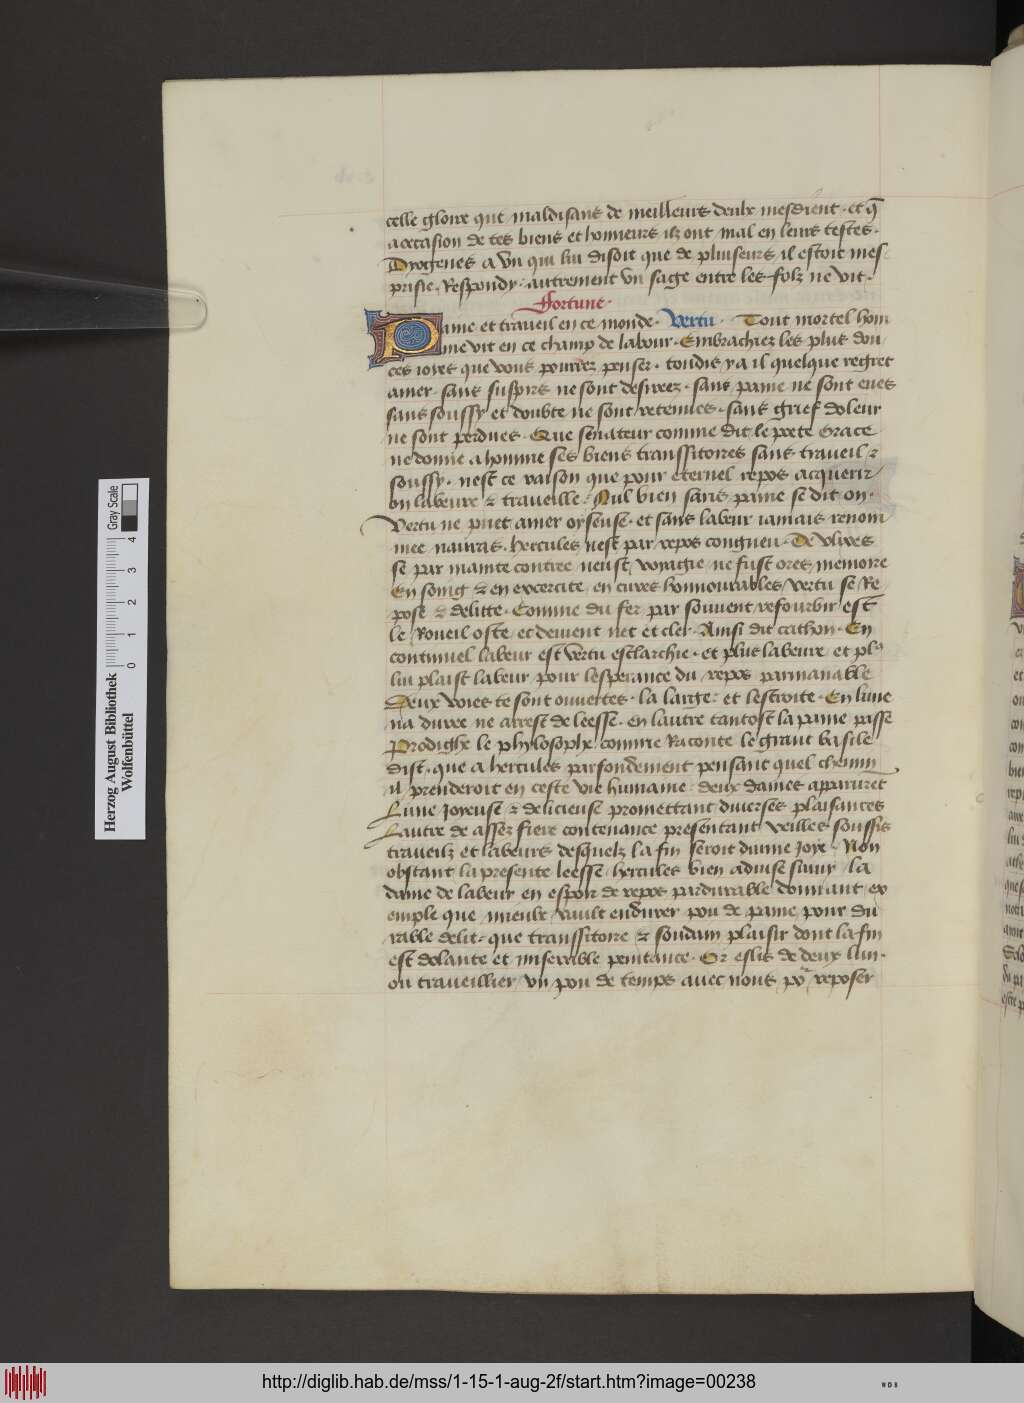 celle gloire que maldisans de meilleurs deulx mesdient. et q̄
a occasion de tes biens et honneurs ilz ont mal en leurs testes.
Dyogenes a vn qui lui disoit que de pluiseurs il estoit mes
prisie. Respondy. autrement vn sage entre les folz ne vit.
Fortune.
Paine et traueil en ce monde. Vertu. Tout mortel hom
me vit en ce champ de labour. Embrachiez les plus dou
ces ioyes que vous pourrez penser. toudis y a il quelque regret
amer. sans suspirs ne sont desirez. sans paine ne sont eues
sans soussy et doubte ne sont retenues. sans grief doleur
ne sont perdues. Que senateur comme dit le poete Orace
ne donne a homme ses biens transsitoires sans traueil &
soussy. nest ce raison que pour eternel repos acquerir
on labeure & traueille. Nul bien sans paine se dit on.
Vertu ne puet amer oyseuse. et sans labeur iamais renom
mee nauras. hercules nest par repos congneu. De vlixes
se par mainte contree neust voyagie ne fust ores memoire
En soing & en excercite en cures honnourables vertu se Re
pose & delitte. Comme du fer par souuent refourbir est
le Roueil oste et deuient net et cler. Ainsi dit cathon. En
continuel labeur est vertu esclarchie. et plus labeure et pl9
lui plaist labeur pour lesperance du repos parmanable
Deux voies te sont ouuertes. la large et lestroite. En lune
na duree ne arrest de leesse. en lautre tantost la paine passe
Prodighe le phylosophe comme Raconte le grant basile
dist. que a hercules parfondement pensant quel chemin
il prenderoit en ceste vie humaine deux dames apparurent
Lune Joyeuse & delicieuse promettant diuerses plaisances
Lautre de assez fiere contenance presentant veilles soussis
traueilz et labeurs desquelz la fin seroit diuine Joye. Non
obstant la presente leesse hercules bien aduise siuir la
dame de labeur en espoir de repos pardurable donnant ex
emple que mieulx vault endurer pou de paine pour du
rable delit. que transsitoire & soudain plaisir dont la fin
est dolante et miserable penitance. Or eslis de deux lun.
ou traueillier vn pou de temps auec nous po2 reposer
Herzog August Bibliothek
Wolfenbüttel
0 1 2 3 4
Gray Scale
http://diglib.hab.de/mss/1-15-1-aug-2f/start.htm?image=00238
WDB